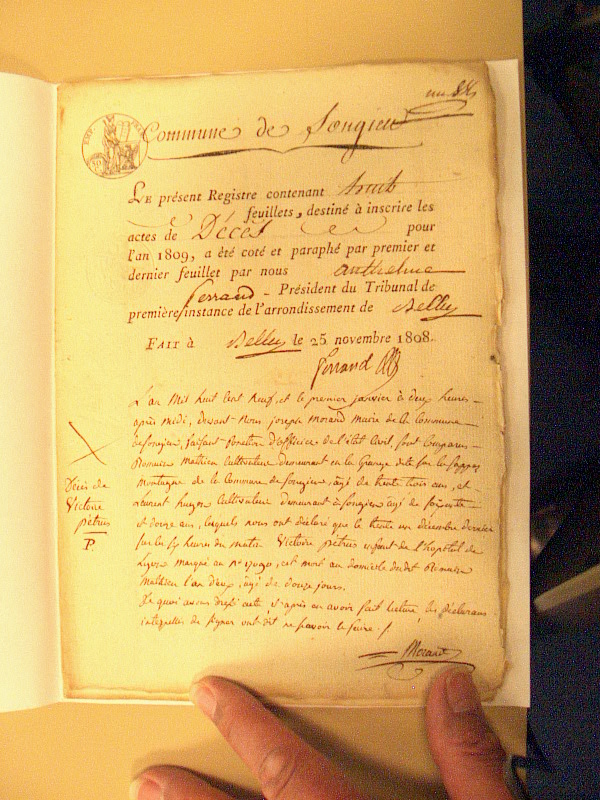 Commune de Songieu
LE présent Registre contenant huit
feuillets, destiné à inscrire les
actes de Décès pour
l'an 1809, a été coté et paraphé par premier et
dernier feuillet par nous anthelme
ferrand - Président du Tribunal de
première instance de l'arrondissement de Belley
FAIT à Belley le 25 novembre 1808.
ferrand
L'an Mil huit Cent Neuf, et le premier janvier à deux heures
après Midi, devant Nous joseph Morand Maire de la Commune
de songieu, faisant fonction d'officier de l'état Civil, sont Comparus
Mathieu Cultivateur demeurant en la Grange
Montagne de la Commune de songieu, agé de trente trois ans, et
Laurent Cultivateur demeurant à songieu agé de soixante
et douze ans, lesquels nous ont déclaré que le trente un décembre dernier
heures du matin Victoire pétrus enfant de l'hopital de
Lyon Marqué au Nº est mort au domicile dudit
Mathieu l'an deux, agé de douze jours.
De quoi avons dressé acte, et après en avoir fait lecture, les déclarans
interpellés de signer ont dit ne savoir le faire.
Morand
Décès de
Victoire
pétrus
P.